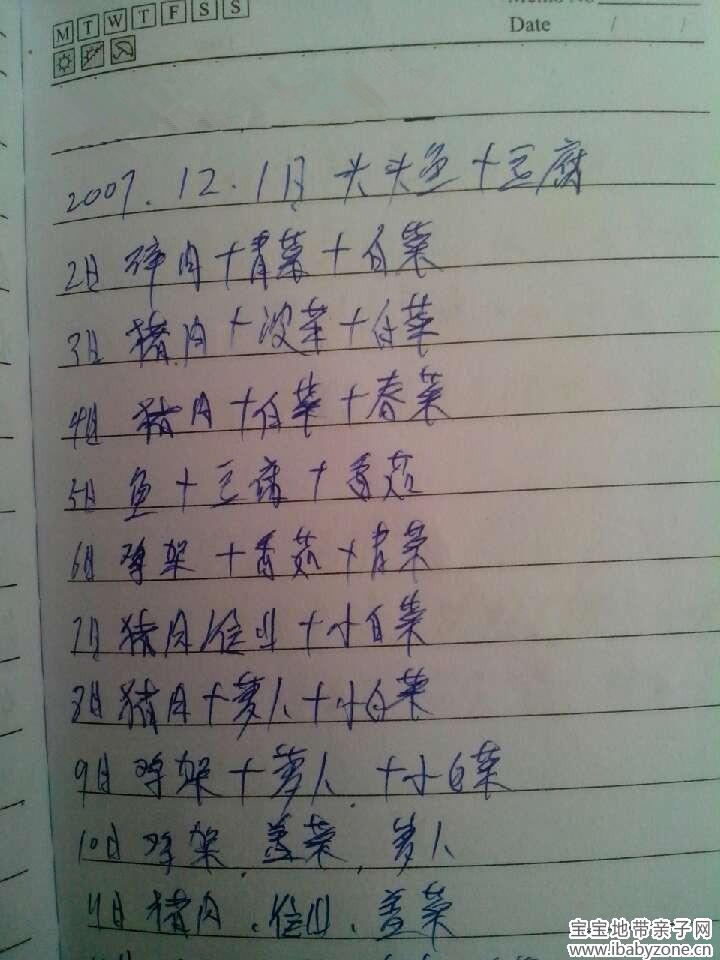 M T W T F S S
Memo No.
Date / /
2007.12.1日 头头鱼+豆腐
2日 碎肉+青菜+白菜
3日 猪肉+波菜+白菜
4日 猪肉+白菜+春菜
5日 鱼+豆腐+香菇
6日 鸡架+香菇+青菜
7日 猪肉/佳业+小白菜
8日 猪肉+萝卜+小白菜
9日 鸡架+萝卜+小白菜
10日 鸡架.盖菜,萝卜
11日 猪肉、盖菜
宝宝地带亲子网
www.ibabyzone.cn